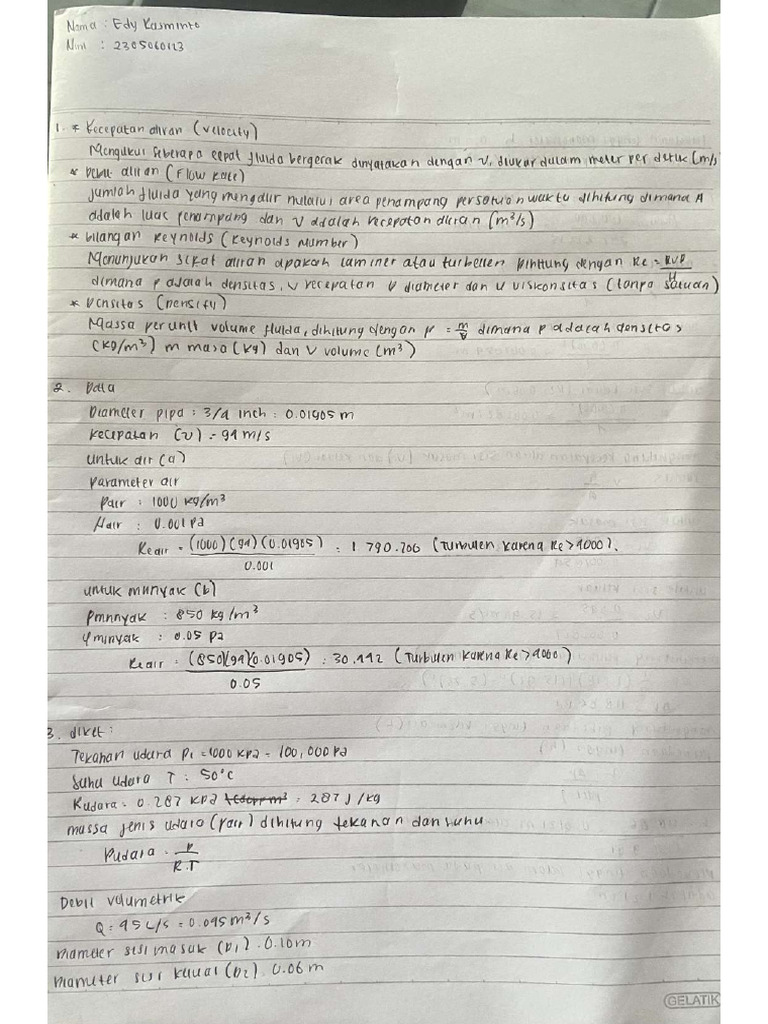 Nama : Edy Kasminto
Nim : 2305060123
1. * Kecepatan aliran (velocity)
Mengukur seberapa cepat fluida bergerak dinyatakan dengan v, diukur dalam meter per detik (m/s
* Debit aliran (Flow Rate)
Jumlah fluida yang mengalir melalui area penampang persatuan waktu dihitung dimana A
adalah luas penampang dan v adalah kecepatan aliran (m³/s)
* bilangan Reynolds (Reynolds Number)
Menunjukan sifat aliran apakah laminer atau turbellen Dihitung dengan Re = RVD/μ
dimana p adalah densitas, v kecepatan D diameter dan u viskonsitas (tanpa satuan)
* Densitas (Density)
Massa per unit volume fluida, dihitung dengan p = m/v dimana p adalah densitas
(KG/m³) m masa (kg) dan V volume (m³)
2. Data
Diameter pipa : 3/4 inch : 0.01905 m
Kecepatan (v) = 94 m/s
untuk air (a)
Parameter air
Pair : 1000 kg/m³
μair : 0.001 Pa
Reair = (1000)(94)(0.01905) / 0.001 : 1.790.706 (Turbulen karena Re > 4000).
untuk minyak (b)
Pmnnyak : 850 kg/m³
μminyak : 0.05 Pa
Reair = (850)(94)(0.01905) / 0.05 : 30.442 (Turbulen karena Re > 4000)
3. diket :
Tekanan udara P₁ = 1000 kPa = 100,000 Pa
Suhu udara T : 50°C
Rudara = 0.287 kPa = 287 J/kg
massa jenis udara (pair) dihitung tekanan dan suhu
Pudara = P / R.T
Debit volumetrik
Q = 95 L/s = 0.095 m³/s
Diameter sisi masuk (D₁) . 0.10 m
Diameter sisi keluar (D₂) . 0.06 m
GELATIK